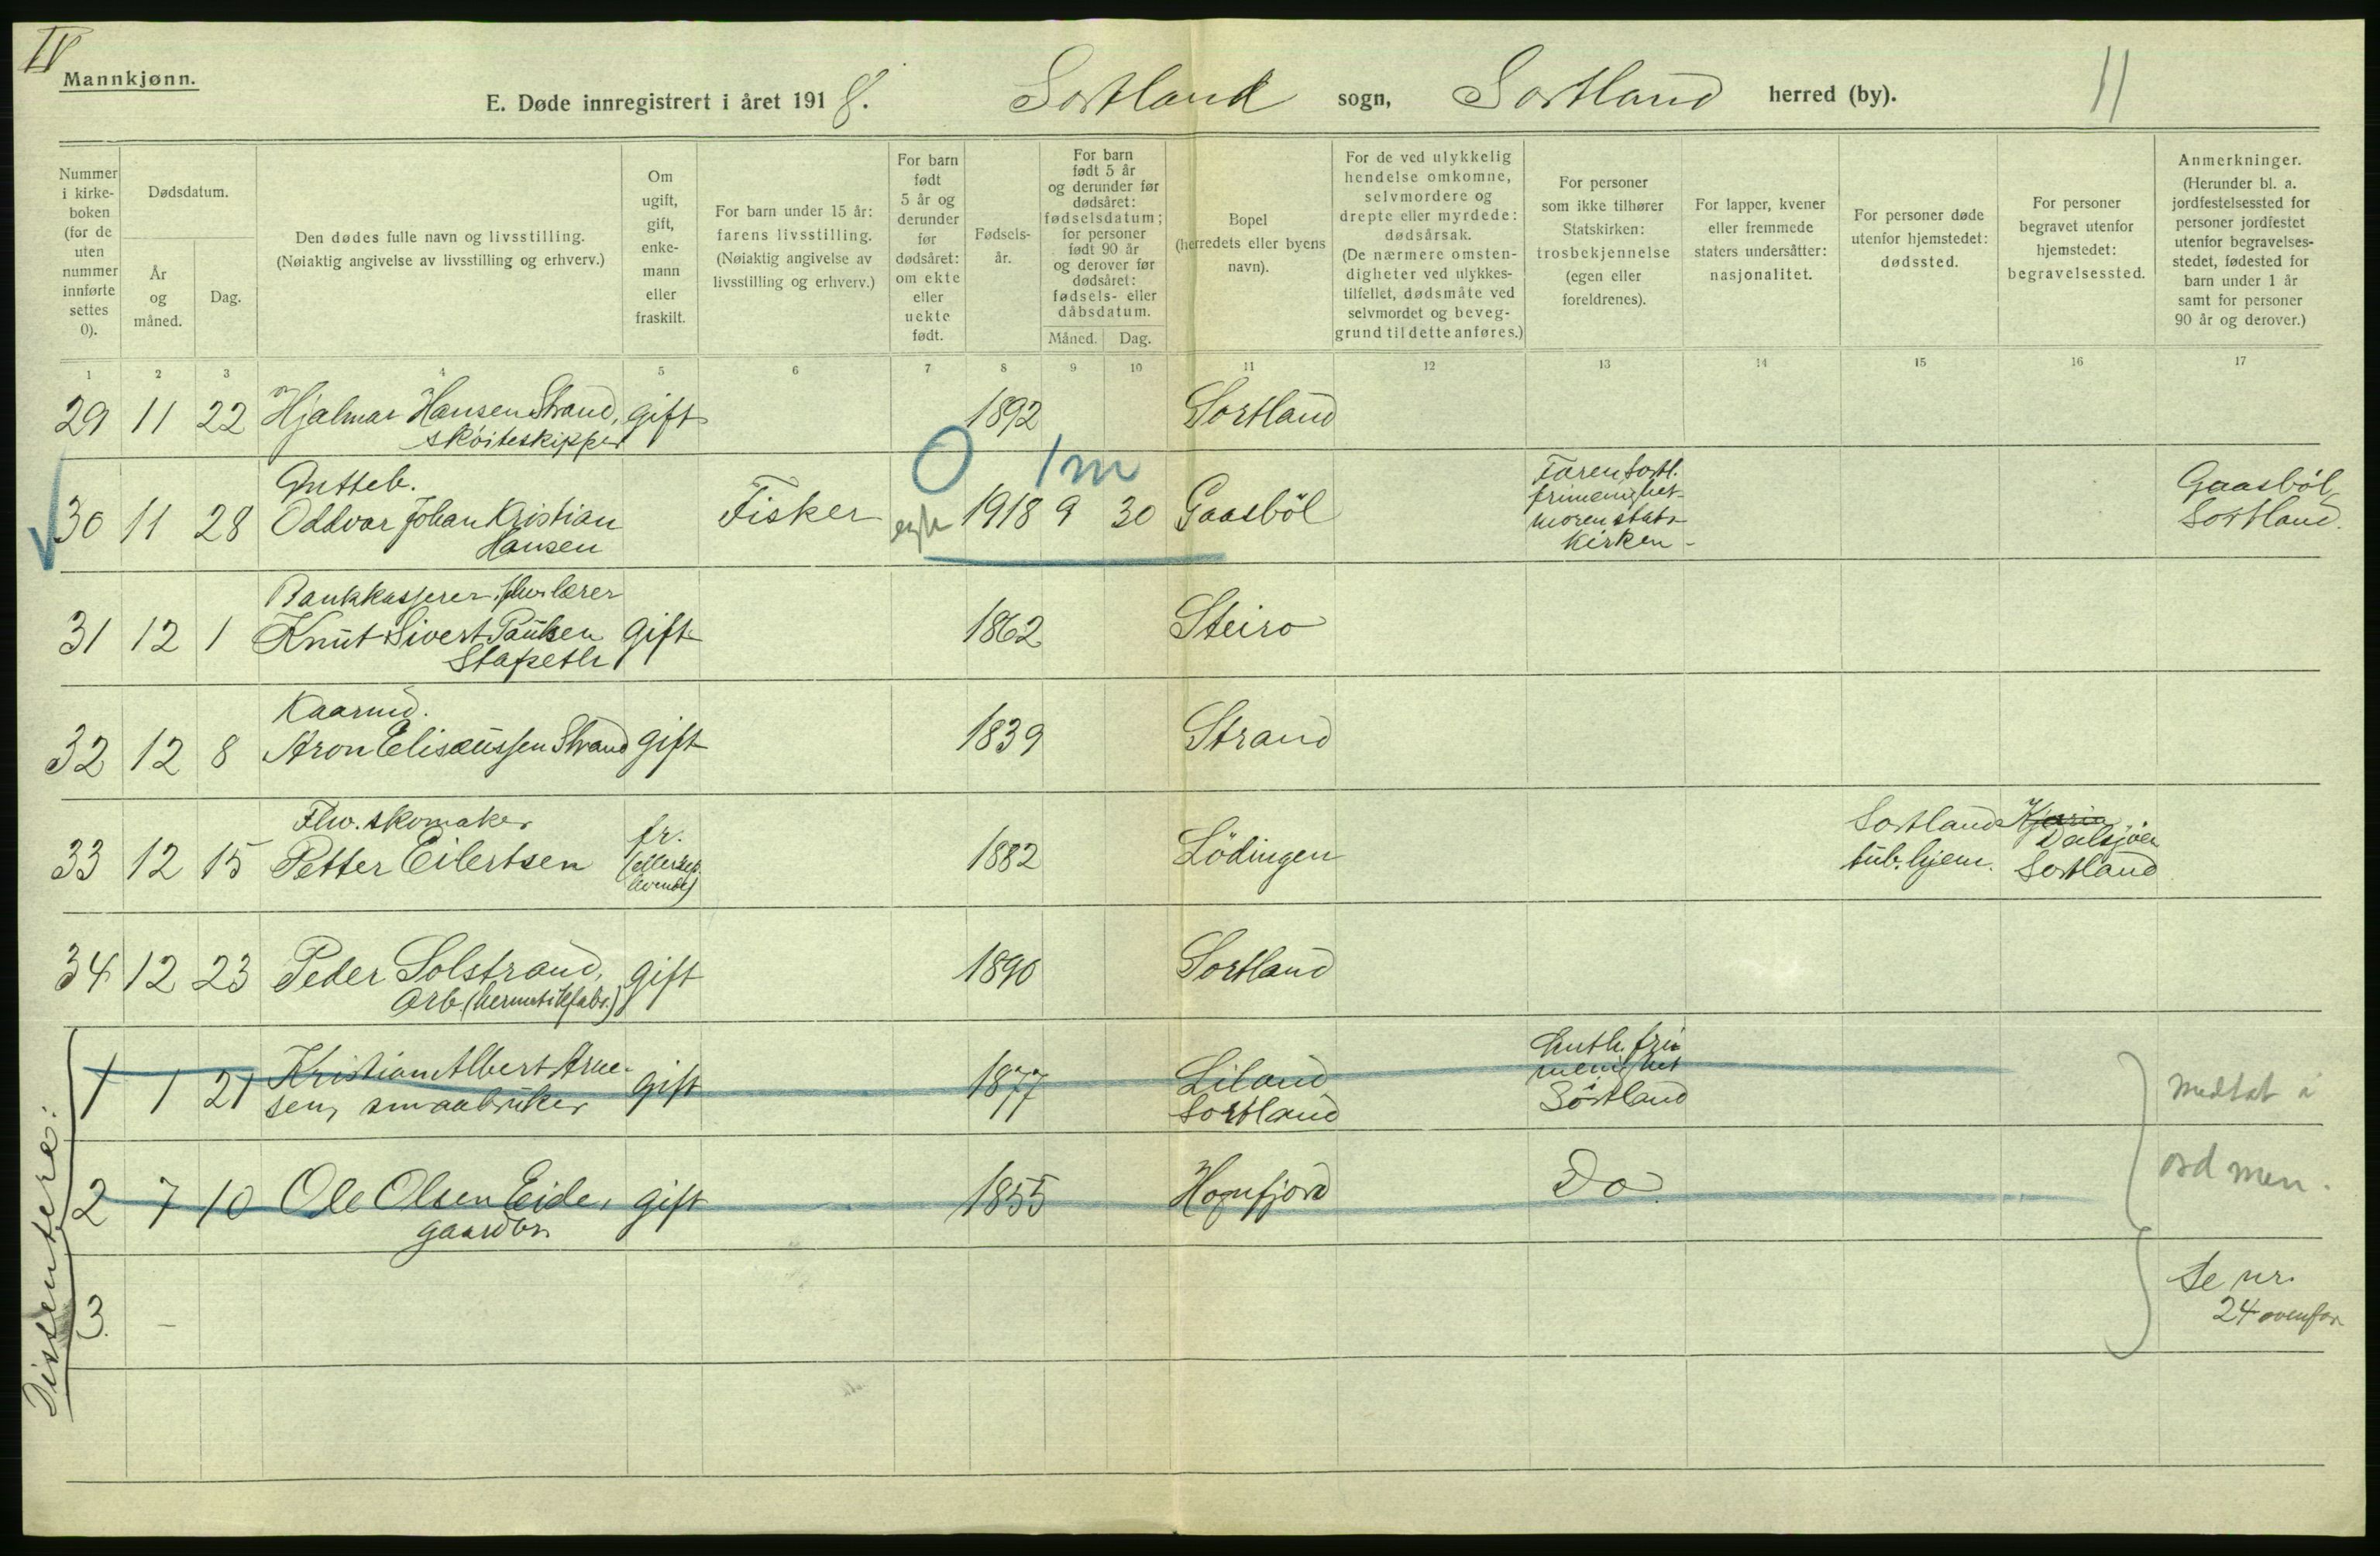 IV
Mannkjønn.
E. Døde innregistrert i året 1918. Sortland sogn, Sortland herred (by). 11
Nummer
i kirke-
boken
(for de
uten
nummer
innførte
settes
0).
Dødsdatum.
År
og
måned.
Dag.
Den dødes fulle navn og livsstilling.
(Nøiaktig angivelse av livsstilling og erhverv.)
Om
ugift,
gift,
enke-
mann
eller
fraskilt.
For barn under 15 år:
farens livsstilling.
(Nøiaktig angivelse av
livsstilling og erhverv.)
For barn
født
5 år og
derunder
før
dødsåret:
om ekte
eller
uekte
født.
Fødsels-
år.
For barn
født 5 år
og derunder før
dødsåret:
fødselsdatum;
for personer
født 90 år
og derover før
dødsåret:
fødsels- eller
dåbsdatum.
Måned. Dag.
Bopel
(herredets eller byens
navn).
For de ved ulykkelig
hendelse omkomne,
selvmordere og
drepte eller myrdede:
dødsårsak.
(De nærmere omsten-
digheter ved ulykkes-
tilfellet, dødsmåte ved
selvmordet og beveg-
grund til dette anføres.)
For personer
som ikke tilhører
Statskirken:
trosbekjennelse
(egen eller
foreldrenes).
For lapper, kvener
eller fremmede
staters undersåtter:
nasjonalitet.
For personer døde
utenfor hjemstedet:
dødssted.
For personer
begravet utenfor
hjemstedet:
begravelsessted.
Anmerkninger.
(Herunder bl. a.
jordfestelsessted for
personer jordfestet
utenfor begravelses-
stedet, fødested for
barn under 1 år
samt for personer
90 år og derover.)
1 2 3 4 5 6 7 8 9 10 11 12 13 14 15 16 17
29 11 22 Hjalmar Hansen Strand, gift 1892 Sortland
skøiteskipper
0 1 m
Gutteb.
30 11 28 Oddvar Johan Kristian Fisker egte 1918 9 30 Gaasböl
Hansen
Faren Sortl.
frimenighet
moren stats-
kirken -
Gaasböl,
Sortland.
Bankkasserer, fhv. lærer
31 12 1 Knut Sivert Paulsen gift 1862 Steiro
Stapseth
Kaarmd.
32 12 8 Aron Elisæussen Strand gift 1839 Strand
Fhv. skomaker
33 12 15 Petter Eilertsen fr. 1882 Lödingen
(eller sep.
levende)
Sortland
tub. hjem.
Dalsjöen
Sortland
34 12 23 Peder Solstrand, gift 1890 Sortland
Arb. (hermetikfabr.)
Dissentere:
1 1 21 Kristian Albert Arne- gift 1877 Liland
sen, smaabruker Sortland
Luth. fri-
menighet
Sortland
Medtat i
2 7 10 Ole Olsen Eide, gift 1855 Hognfjord Do.
gaardbr.
ord men.
3. -
Se nr.
24 ovenfor